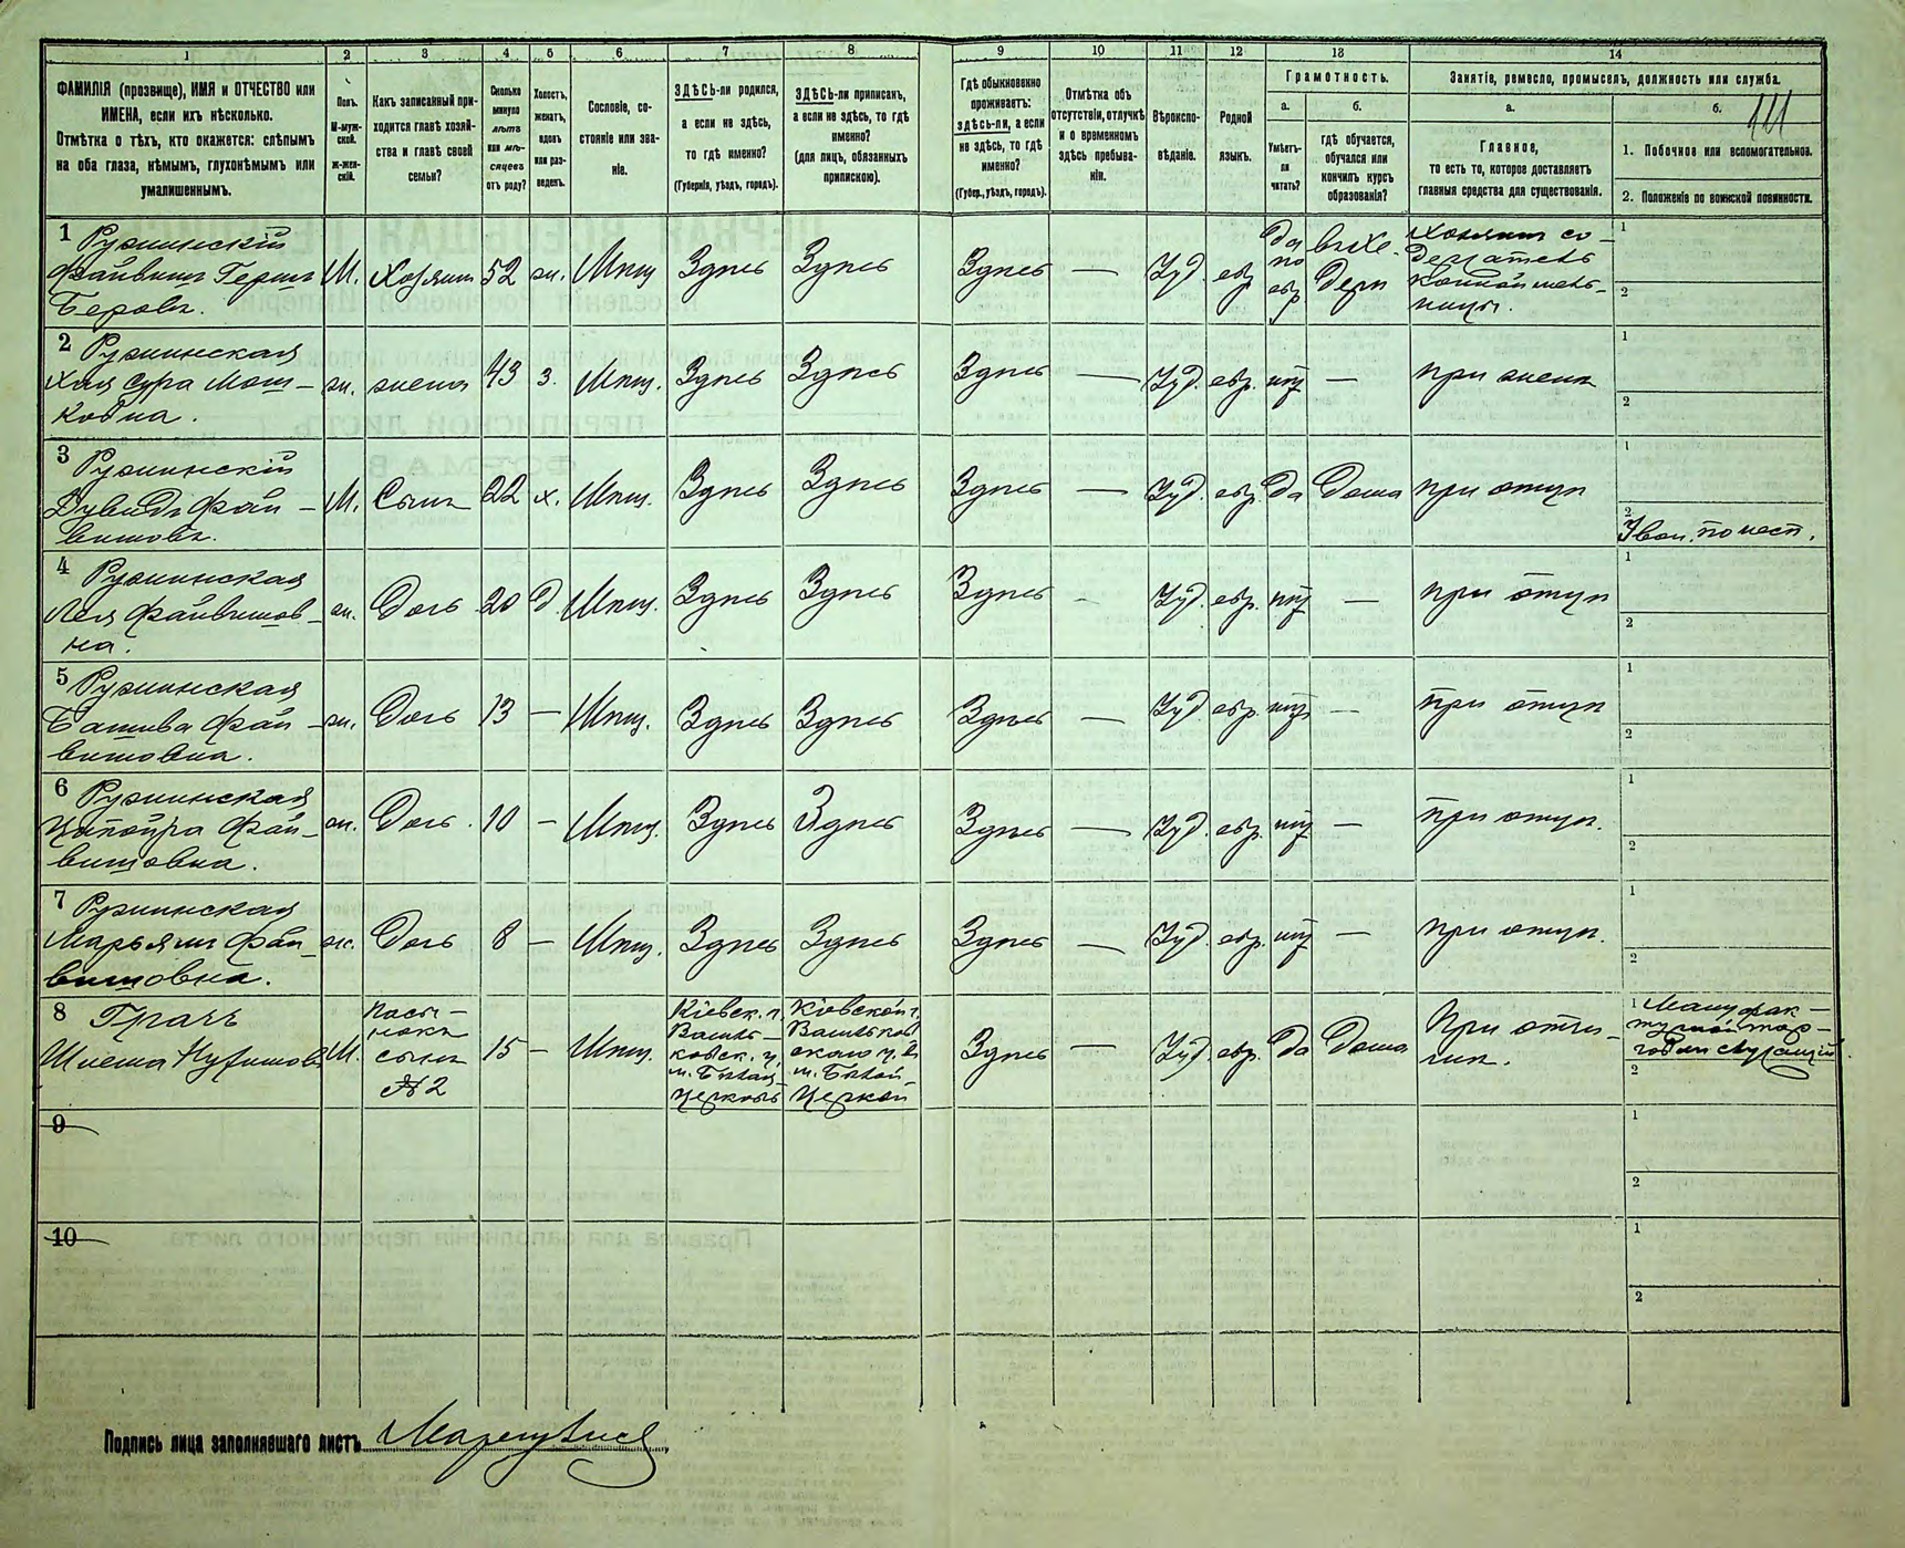 1 2 3 4 5 6 7 8 9 10 11 12 13 14
ФАМИЛІЯ (прозвище), ИМЯ и ОТЧЕСТВО или
ИМЕНА, если ихъ нѣсколько.
Отмѣтка о тѣхъ, кто окажется: слѣпымъ
на оба глаза, нѣмымъ, глухонѣмымъ или
умалишеннымъ.
Полъ.
М-муж-
ской.
Ж-жен-
скій.
Какъ записанный при-
ходится главѣ хозяй-
ства и главѣ своей
семьи?
Сколько
минуло
лѣтъ
или мѣ-
сяцевъ
отъ роду?
Холостъ,
женатъ,
вдовъ
или раз-
веденъ.
Сословіе, со-
стояніе или зва-
ніе.
ЗДѢСЬ-ли родился,
а если не здѣсь,
то гдѣ именно?
(Губернія, уѣздъ, городъ).
ЗДѢСЬ-ли приписанъ,
а если не здѣсь, то гдѣ
именно?
(для лицъ, обязанныхъ
припискою).
Гдѣ обыкновенно
проживаетъ:
здѣсь-ли, а если
не здѣсь, то гдѣ
именно?
(Губер., уѣздъ, городъ).
Отмѣтка объ
отсутствіи, отлучкѣ
и о временномъ
здѣсь пребыва-
ніи.
Вѣроиспо-
вѣданіе.
Родной
языкъ.
Грамотность.
а.
Умѣетъ-
ли
читать?
б.
гдѣ обучается,
обучался или
кончилъ курсъ
образованія?
Занятіе, ремесло, промыселъ, должность или служба.
а.
Главное,
то есть то, которое доставляетъ
главныя средства для существованія.
б.
111
1. Побочное или вспомогательное.
2. Положеніе по воинской повинности.
1 Ружинскій
Файвиш Герш
Беровъ.
М. Хозяинъ 52 ж. Мѣщ Здѣсь Здѣсь Здѣсь — Іуд. евр
Да
по
евр
въ хе-
дерѣ
Хозяинъ со-
держатель
конной мель-
ницы.
1
2
2 Ружинская
Хая Сура Мош-
ковна.
ж. жена 43 з. Мѣщ. Здѣсь Здѣсь Здѣсь — Іуд. евр. нѣт — при мужѣ
1
2
3 Ружинскій
Дувидъ Фай-
вишовъ.
М. Сынъ 22 х. Мѣщ. Здѣсь Здѣсь Здѣсь — Іуд. евр. Да Дома при отцѣ
1
2
4 Ружинская
Лея Файвишов-
на.
ж. Дочь 20 д. Мѣщ. Здѣсь Здѣсь Здѣсь - Іуд. евр. нѣт — при отцѣ
1
2
5 Ружинская
Башива Фай-
вишовна.
ж. Дочь 13 — Мѣщ. Здѣсь Здѣсь Здѣсь — Іуд. евр. нѣт — при отцѣ
1
2
6 Ружинская
Ципойра Фай-
вишовна.
ж. Дочь. 10 — Мѣщ. Здѣсь Здѣсь Здѣсь — Іуд. евр. нѣт — при отцѣ.
1
2
7 Ружинская
Марьям Фай-
вишовна.
ж. Дочь 8 — Мѣщ. Здѣсь Здѣсь Здѣсь — Іуд. евр. нѣт — при отцѣ.
1
2
8 Грачъ
Шлема
М.
Пасы-
нокъ
сынъ
№ 2
15 — Мѣщ.
Кіевск. г.
Василь-
ковск. у.
м. Бѣлая-
Церковь
Кіевской г.
Васильков
скаго у. в
м. Бѣлой-
Церкви
Здѣсь — Іуд. евр. Да Дома
При отчи-
мѣ.
1 Мануфак-
турной тор-
говли служащій.
2
9
1
2
10
1
2
Подпись лица заполнявшаго листъ